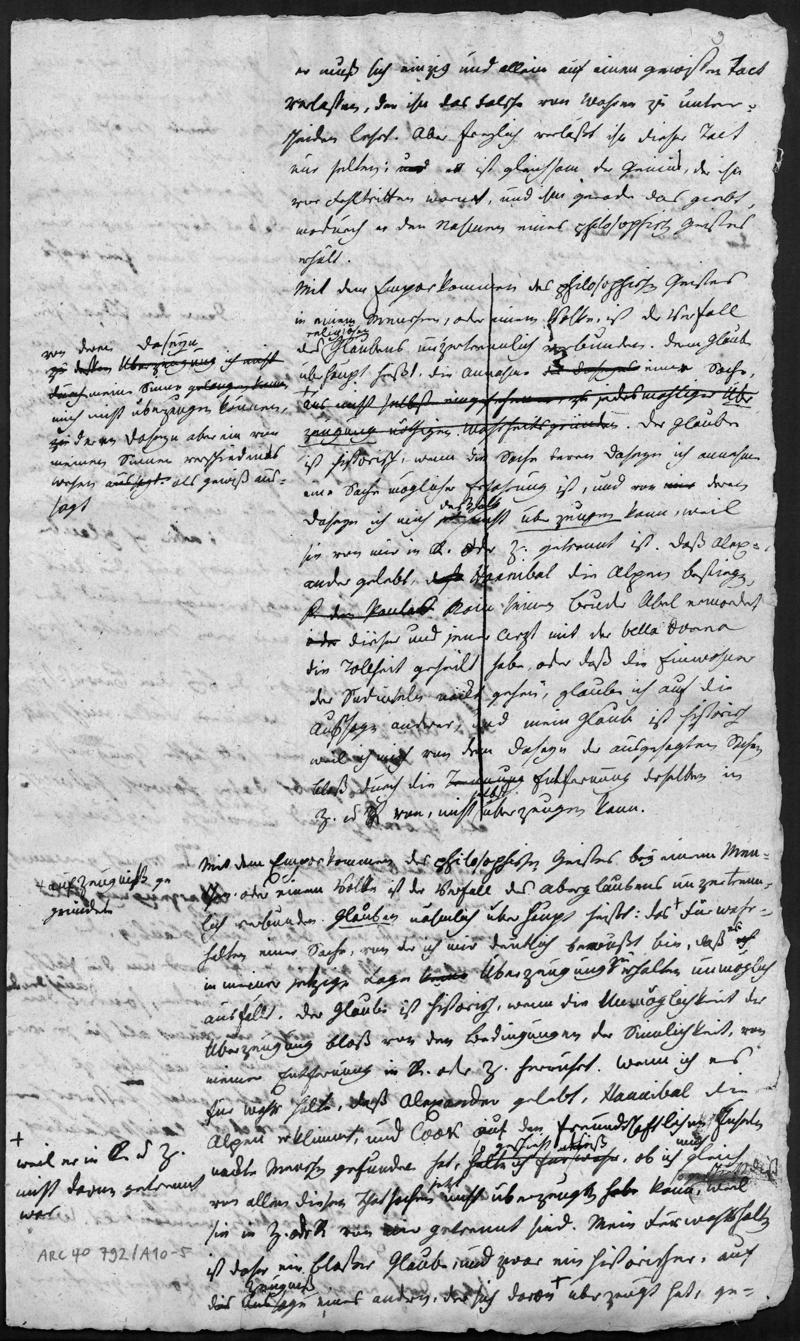 er muß sich einzig und allein auf einen gewissen Tact
verlassen, der ihn das Falsche vom Wahren zu unter=
scheiden lehrt. Aber freylich verläßt ihn dieser Tact
nur selten; und er ist gleichsam der Genius, der ihn
vor Fehltritten warnet, und ihm gerade das giebt,
wodurch er den Nahmen eines philosophischen Geistes
erhält.
Mit dem Emporkommen des philosophischen Geistes
in einem Menschen, oder einem Volke, ist der Verfall
religiösen
des Glaubens unzertrennlich verbunden. Denn Glaube
überhaupt heißt, die Annahme des Daseyns einer Sache,
aus nicht selbst eingesehenen zu jedesmahliger Über
zeugung nöthigen Wahrheitsgründen. Der Glaube
ist historisch, wenn die Sache deren Daseyn ich annehme
eine Sache möglicher Erfahrung ist, und von deren
deshalb
Daseyn ich mich nicht überzeugen kann, weil
sie von mir in R. oder Z. getrennt ist. Daß Alex=
ander gelebt, daß Hannibal die Alpen bestiegen,
Kain seinen Bruder Abel ermordet
oder dieser und jener Arzt mit der bella donna
die Tollheit geheilt habe, oder daß die Einwohner
der Südinseln nackt gehen, glaube ich auf die
Aussage anderer; und mein Glaube ist historisch
weil ich mich von dem Daseyn der ausgesagten Sachen
bloß durch die Trennung Entfernung derselben in
selbst
Z. u R von, nicht überzeugen kann.
von deren Daseyn
zu dessen Überzeugung ich nicht
durch meine Sinne gelangen kann
mich nicht überzeugen können,
zu deren Daseyn aber ein von
meinen Sinnen verschiedenes
Wesen aussagt als gewiß aus=
sagt
Mit dem Emporkommen des philosophischen Geistes bey einem Men=
schen oder einem Volke ist der Verfall des Aberglaubens unzertrenn=
lich verbunden. Glauben nähmlich überhaupt heißt: das + Fürwahr=
halten einer Sache, von der ich mir deutlich bewußt bin, daß es
in meiner jetzigen Lage keine Überzeugung zu erhalten unmöglich
ausfällt. Der Glaube ist historisch, wenn die Unmöglichkeit der
Überzeugung bloß von den Bedingungen der Sinnlichkeit, von
meiner Entfernung in R. oder Z. herrührt. Wenn ich es
für wahr halte, daß Alexander gelebt, Hannibal die
Alpen erklimmt, und Cook auf den Freundschaftlichen Inseln
nackte Menschen gefunden hat, halte ich fürwahr, ob ich gleich
von allen diesen Thatsachen nicht überzeugt habe kann, weil
sie in Z. oder R von mir getrennt sind. Mein Fürwahrhalten
ist daher ein bloßer Glaube, und zwar ein historischer, auf
Zeugniß
das Aussage eines andern, der sich davon + überzeugt hat, ge=
+ auf Zeugniß ge
gründete
+
weil er in R. u Z.
nicht davon getrennt
war
ARC 40 792/A10-5